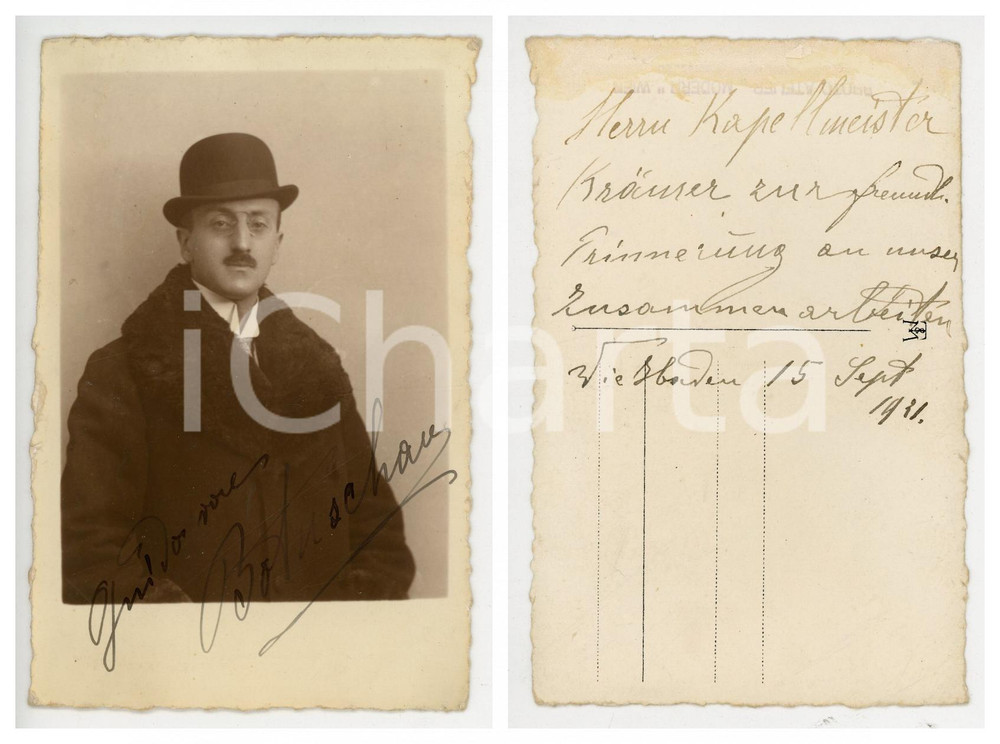 Guido von
iCharta
Herrn Kapellmeister
Kräuser zur freundl.
Erinnerung an unser
Zusammenarbeiten
Wiesbaden 15 Sept
1931.